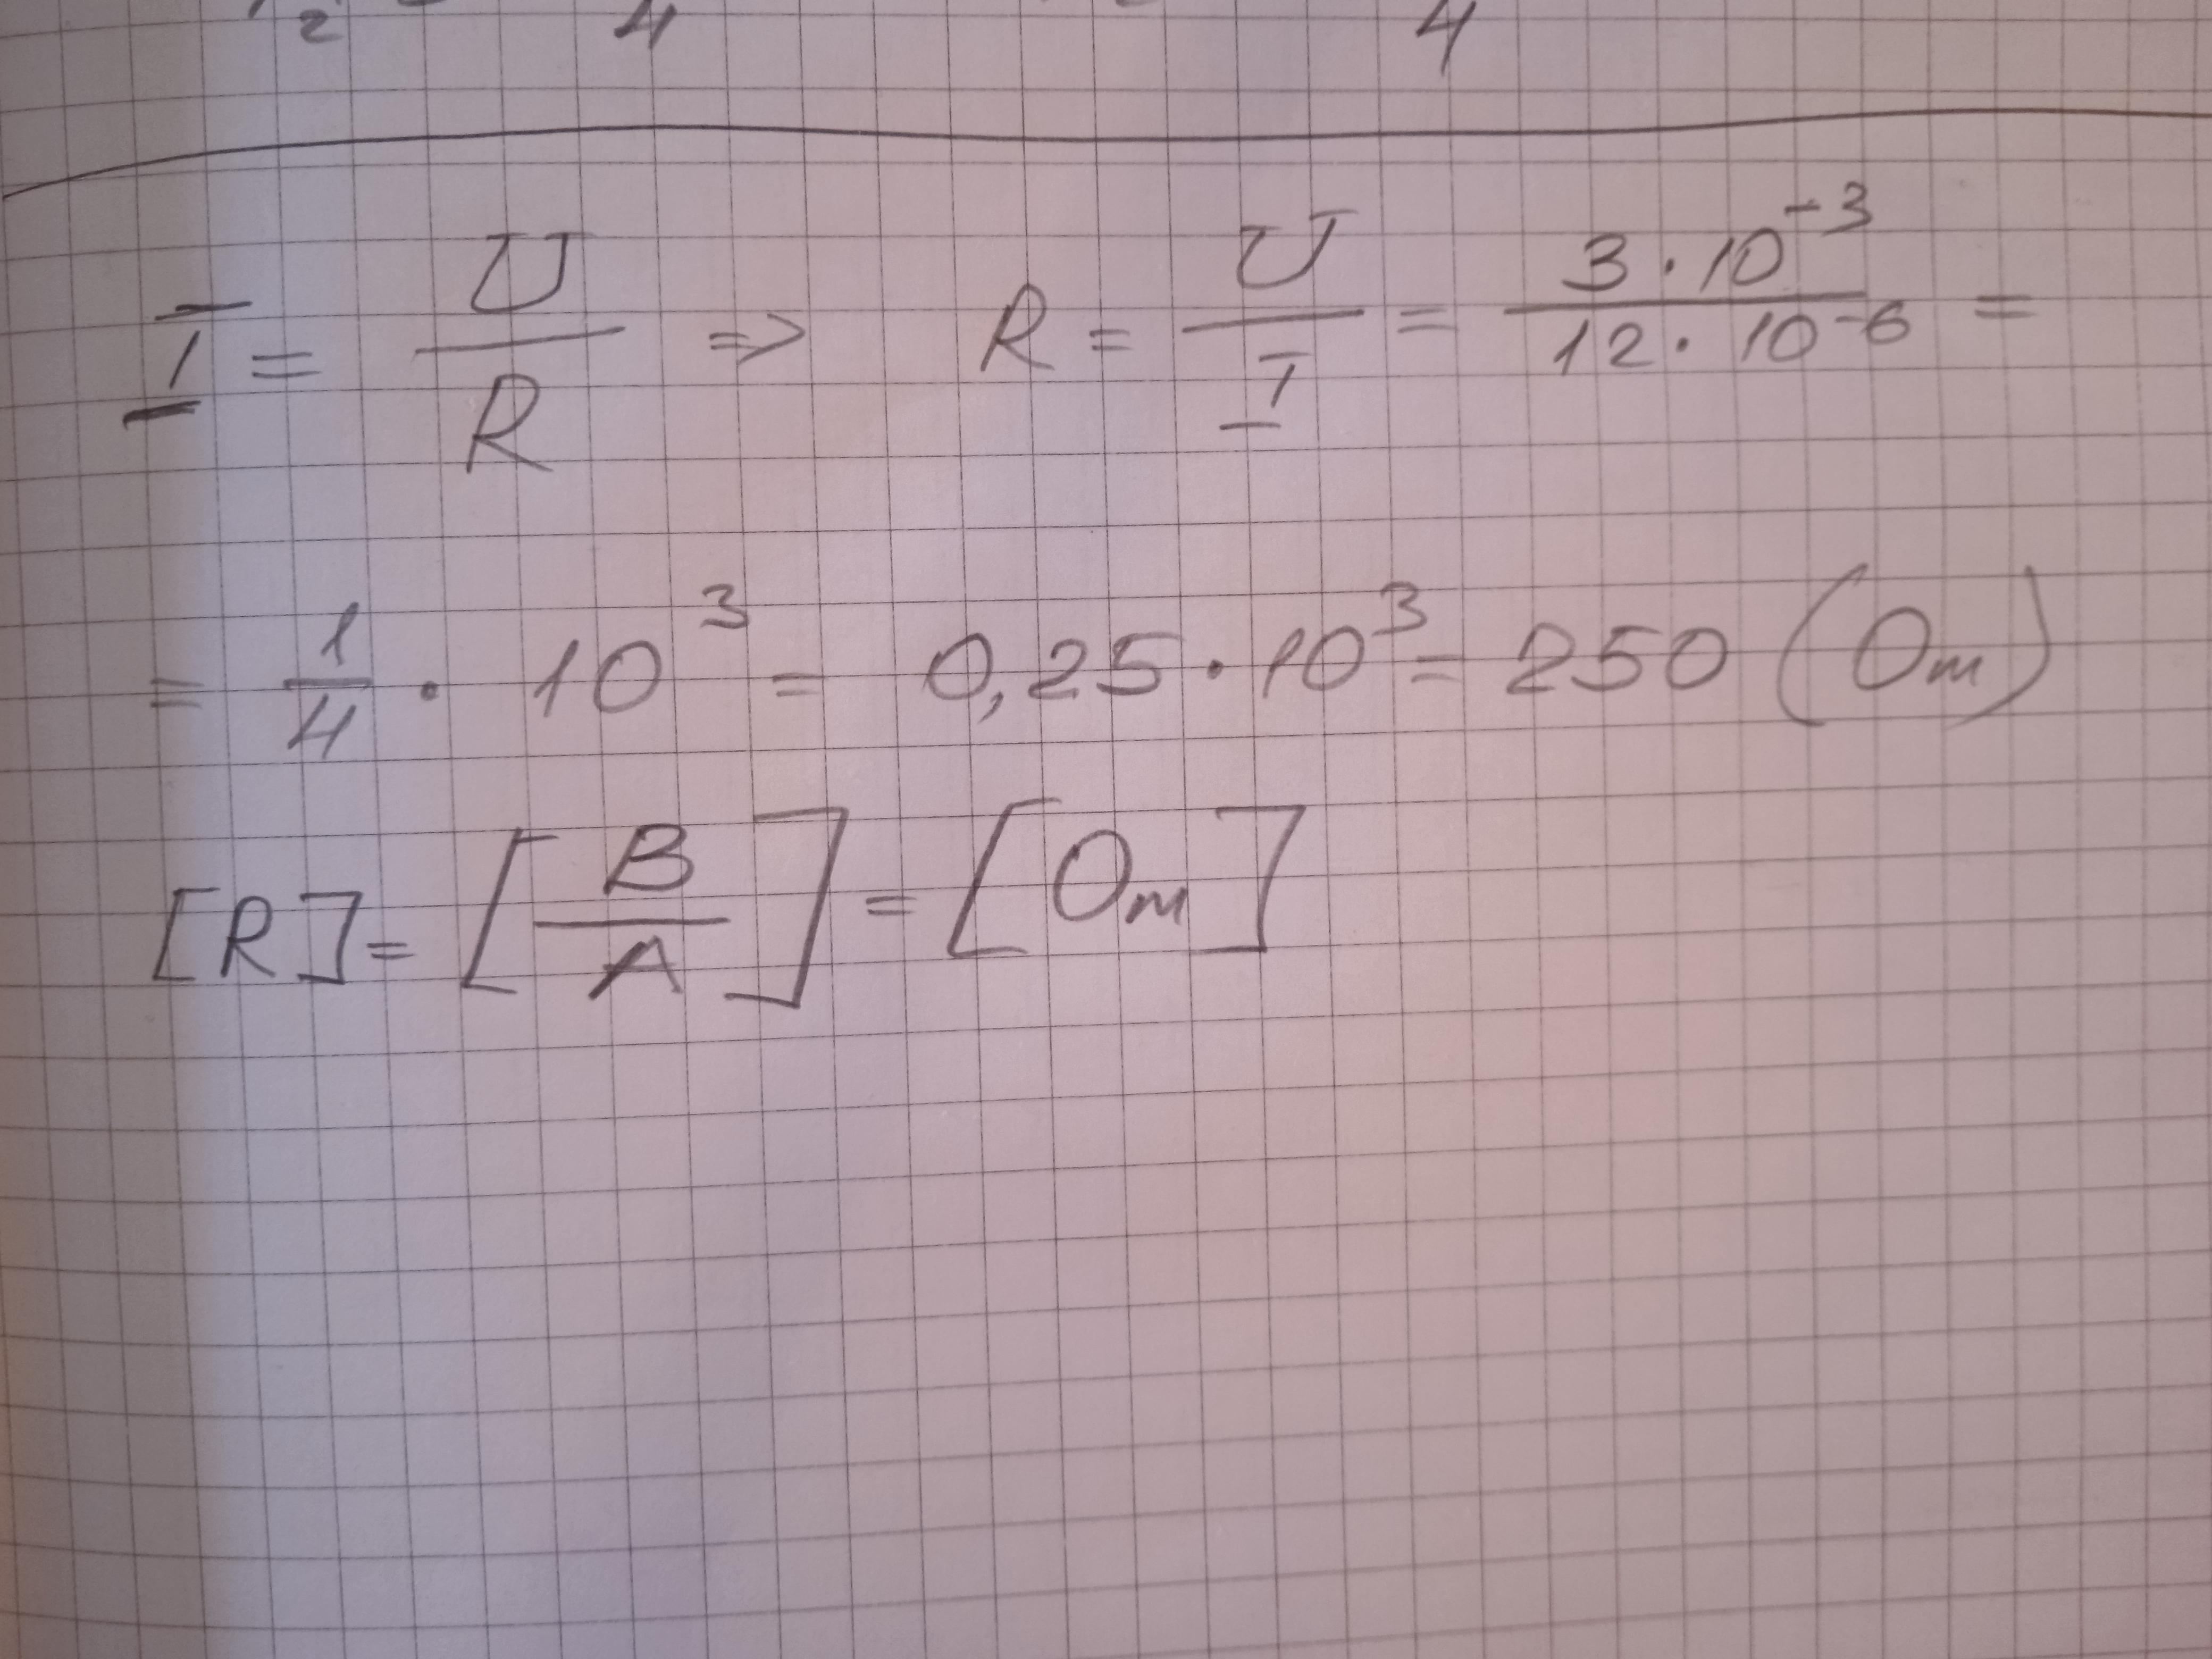 2 4 4
I = U/R => R = U/I = 3 · 10⁻³ / 12 · 10⁻⁶ =
= 1/4 · 10³ = 0,25 · 10³ = 250 (Ом)
[R] = [В/А] = [Ом]